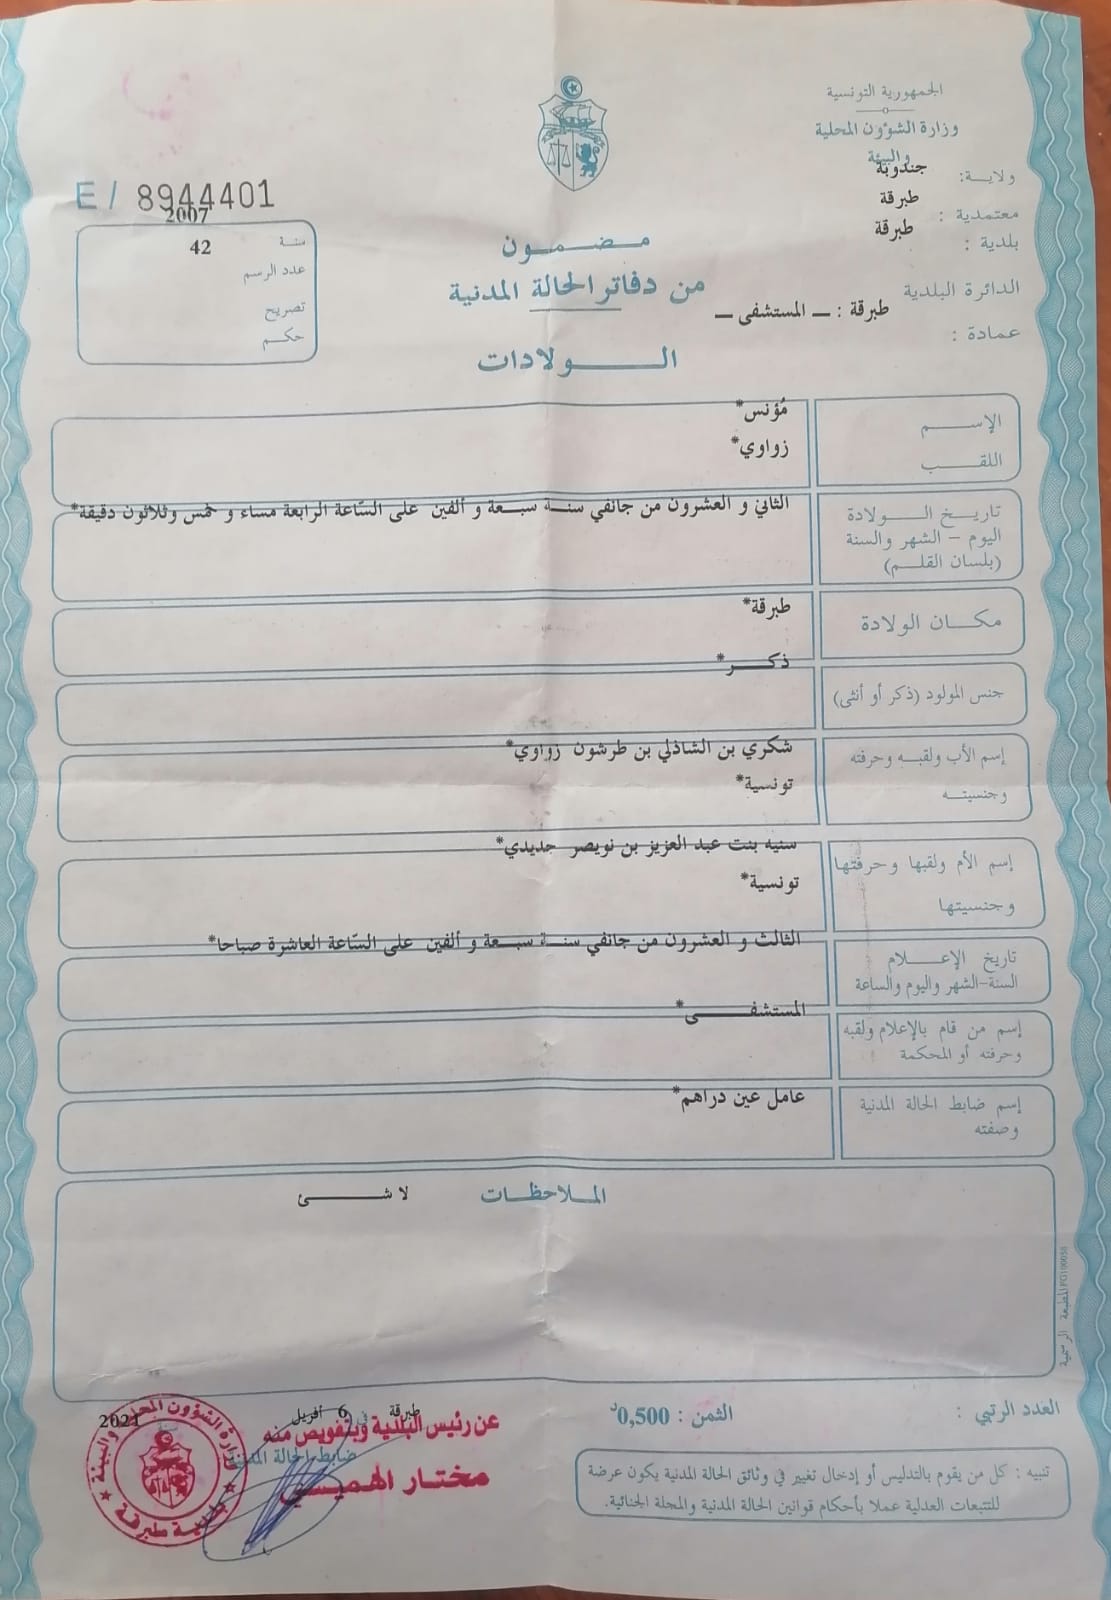 الجمهورية التونسية
وزارة الشؤون المحلية
والبيئة
ولاية: جندوبة
معتمدية : طبرقة
بلدية : طبرقة
الدائرة البلدية
طبرقة : ــ المستشفى ــ
عمادة :
E / 8944401
2007
سنة 42
عدد الرسم
تصريح
حكم
مضمون
من دفاتر الحالة المدنية
الولادات
الإسم مُؤنس*
اللقب زواوي*
تاريخ الولادة
اليوم – الشهر والسنة
(بلسان القلم)
الثاني و العشرون من جانفي سنة سبعة و ألفين على السّاعة الرابعة مساء و خمس وثلاثون دقيقة*
مكان الولادة طبرقة*
جنس المولود (ذكر أو أنثى) ذكر*
إسم الأب ولقبه وحرفته
وجنسيته
شكري بن الشاذلي بن طرشون زواوي*
تونسية*
إسم الأم ولقبها وحرفتها
وجنسيتها
سنيه بنت عبد العزيز بن نويصر حديدي*
تونسية*
تاريخ الإعلام
السنة-الشهر واليوم والساعة
الثالث و العشرون من جانفي سنة سبعة و ألفين على السّاعة العاشرة صباحا*
إسم من قام بالإعلام ولقبه
وحرفته أو المحكمة
المستشفى*
إسم ضابط الحالة المدنية
وصفته
عامل عين دراهم*
الملاحظات لا شئ
المطبعة الرسمية
العدد الرتبي :
الثمن : 0,500د
تنبيه : كل من يقوم بالتدليس أو إدخال تغيير في وثائق الحالة المدنية يكون عرضة
للتتبعات العدلية عملا بأحكام قوانين الحالة المدنية والمجلة الجنائية.
طبرقة في 6 أفريل 2021
عن رئيس البلدية وبتفويض منه
ضابط الحالة المدنية
مختار الهميسي
وزارة الشؤون المحلية والبيئة
بلدية طبرقة